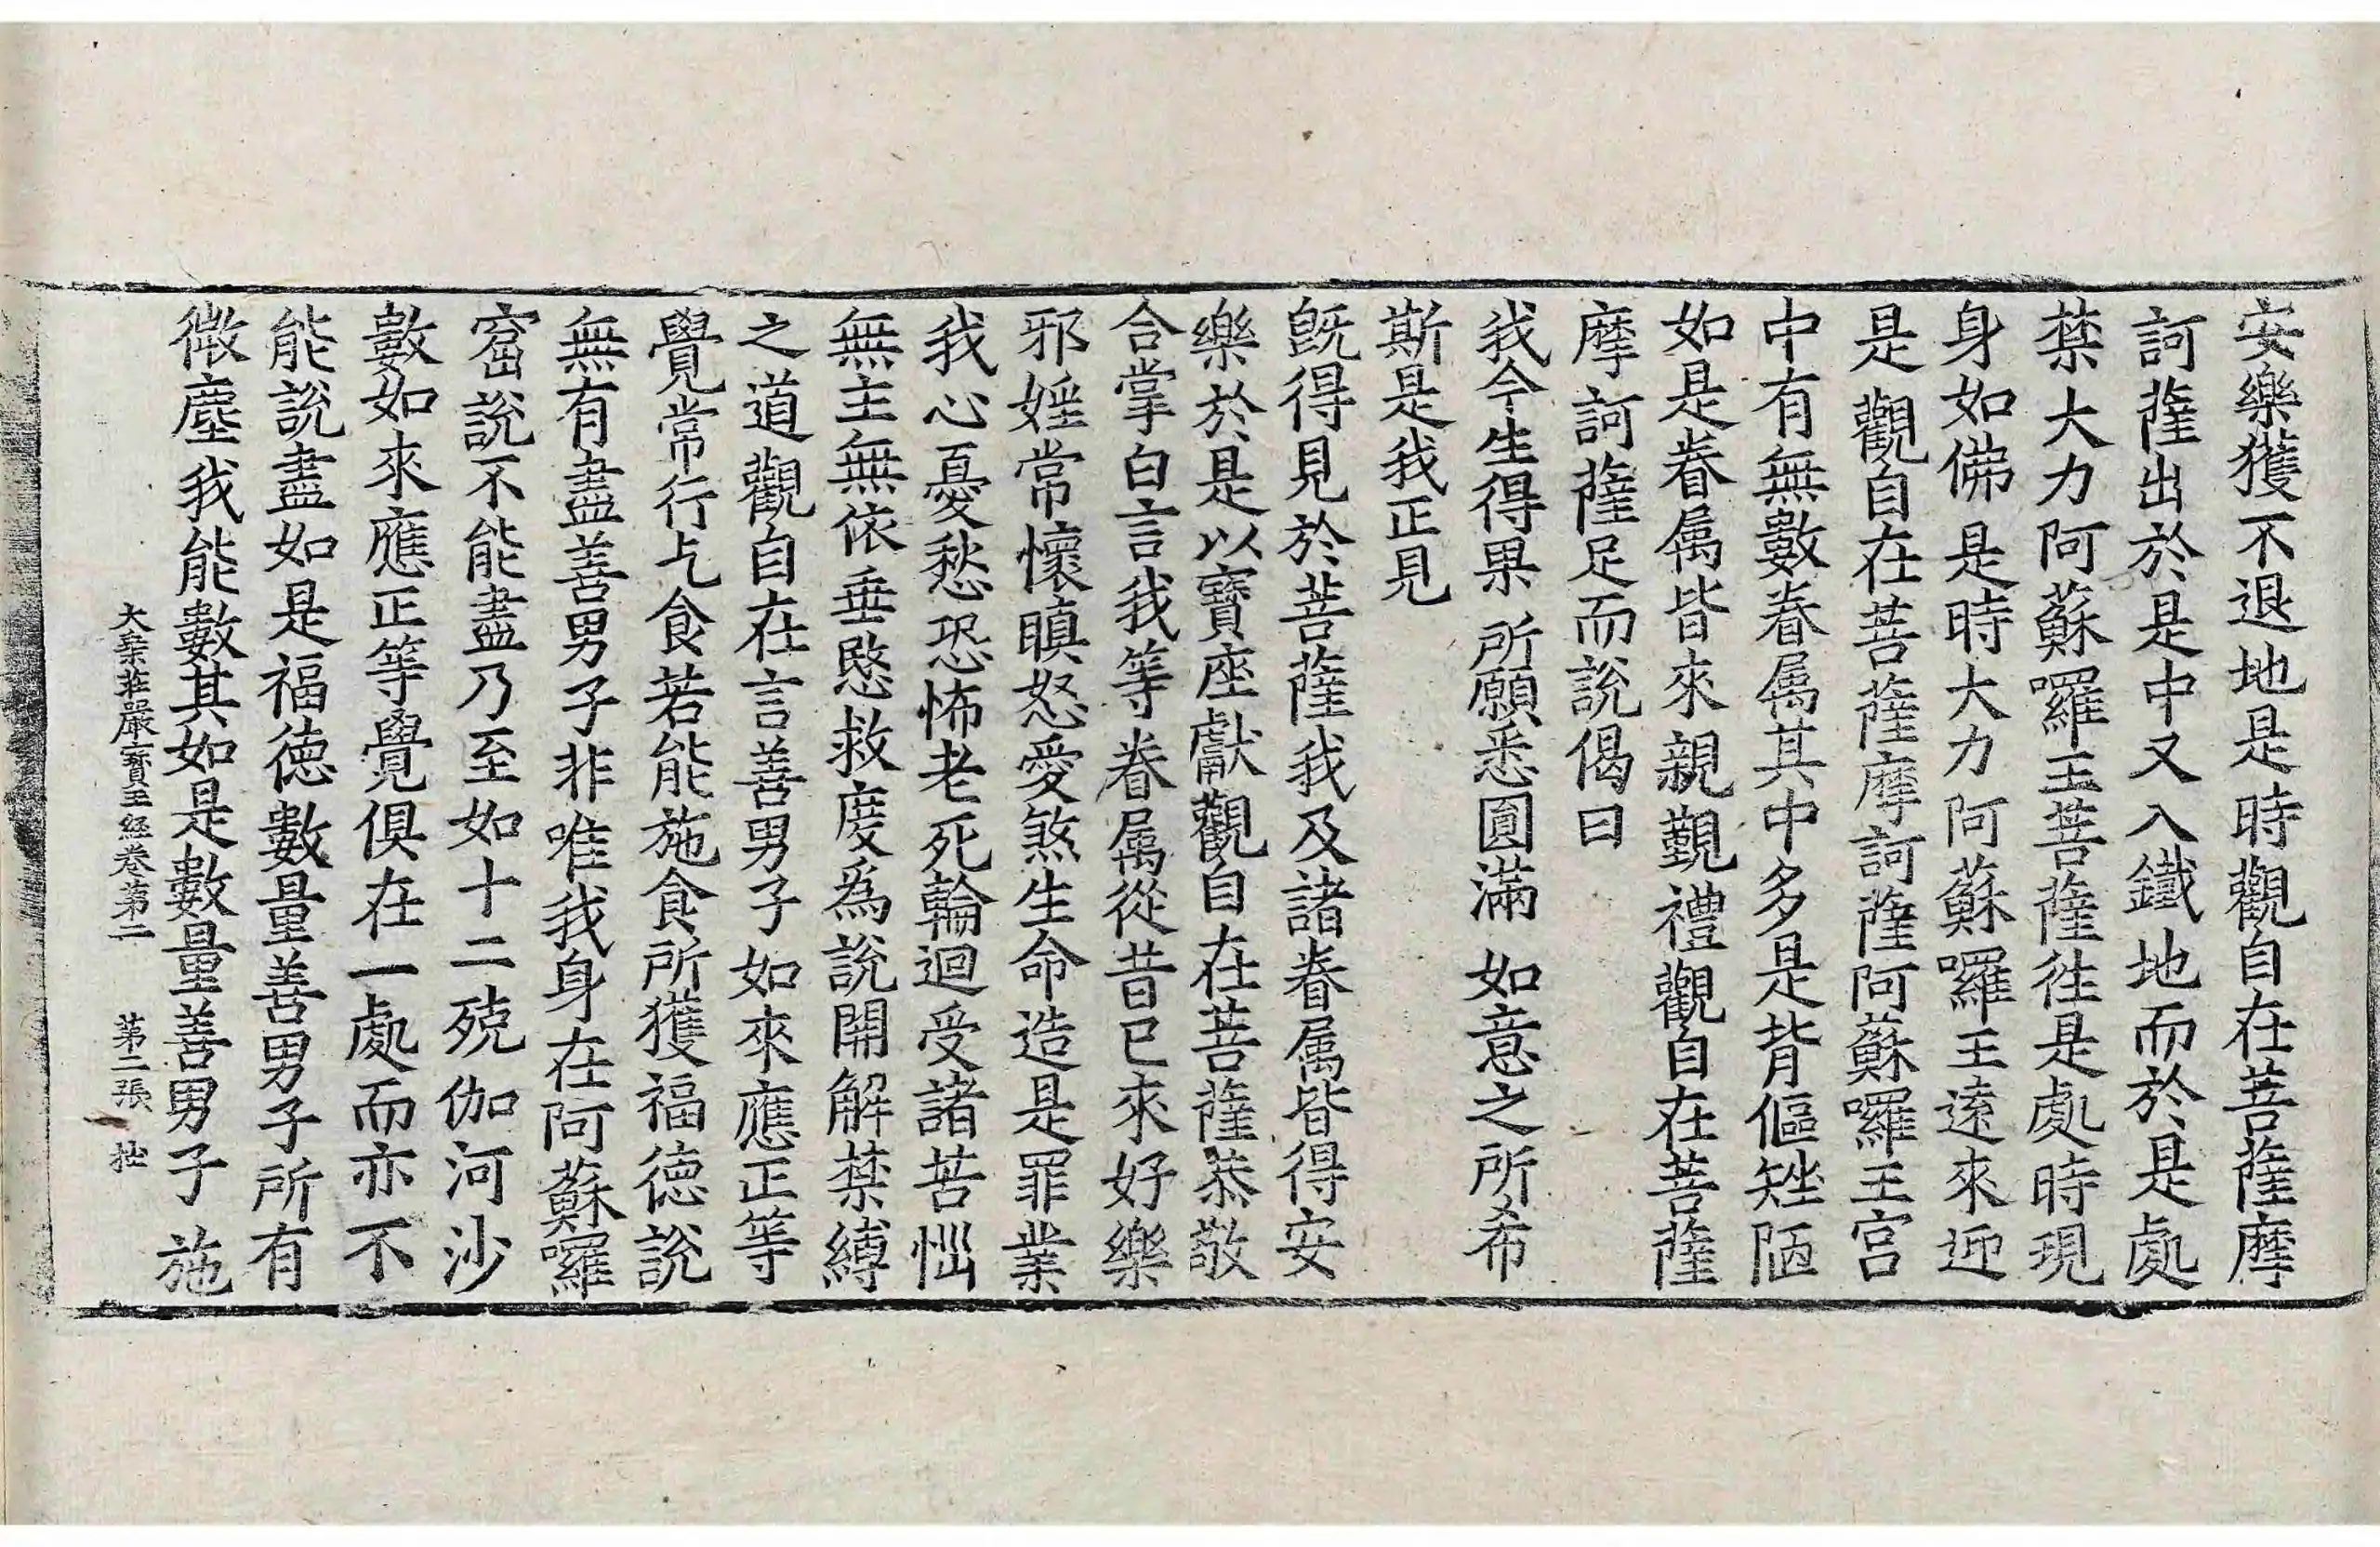 安樂獲不退地是時觀自在菩薩摩
訶薩出於是中又入鐵地而於是處
禁大力阿蘇囉王菩薩徃是處時現
身如佛是時大力阿蘇囉王遠來迎
是觀自在菩薩摩訶薩阿蘇囉王宮
中有無數眷属其中多是背傴矬陋
如是眷属皆來親覲禮觀自在菩薩
摩訶薩足而說偈曰
我今生得果 所願悉圓滿 如意之所希
斯是我正見
旣得見於菩薩我及諸眷属皆得安
樂於是以寶座獻觀自在菩薩恭敬
合掌白言我等眷属從昔已來好樂
邪婬常懷瞋怒愛煞生命造是罪業
我心憂愁恐怖老死輪迴受諸苦惱
無主無依垂愍救度為說開解禁縛
之道觀自在言善男子如來應正等
覺常行乞食若能施食所獲福德說
無有盡善男子非唯我身在阿蘇囉
窟說不能盡乃至如十二殑伽河沙
數如來應正等覺俱在一處而亦不
能說盡如是福德數量善男子所有
微塵我能數其如是數量善男子施
大乗莊嚴寶王經卷第二 第二張